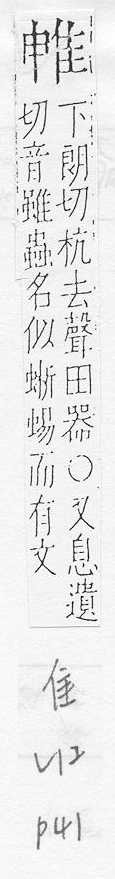 下朗切杭去聲田器○又息遺
切音雖蟲名似蜥蜴而有文
隹
V12
p41